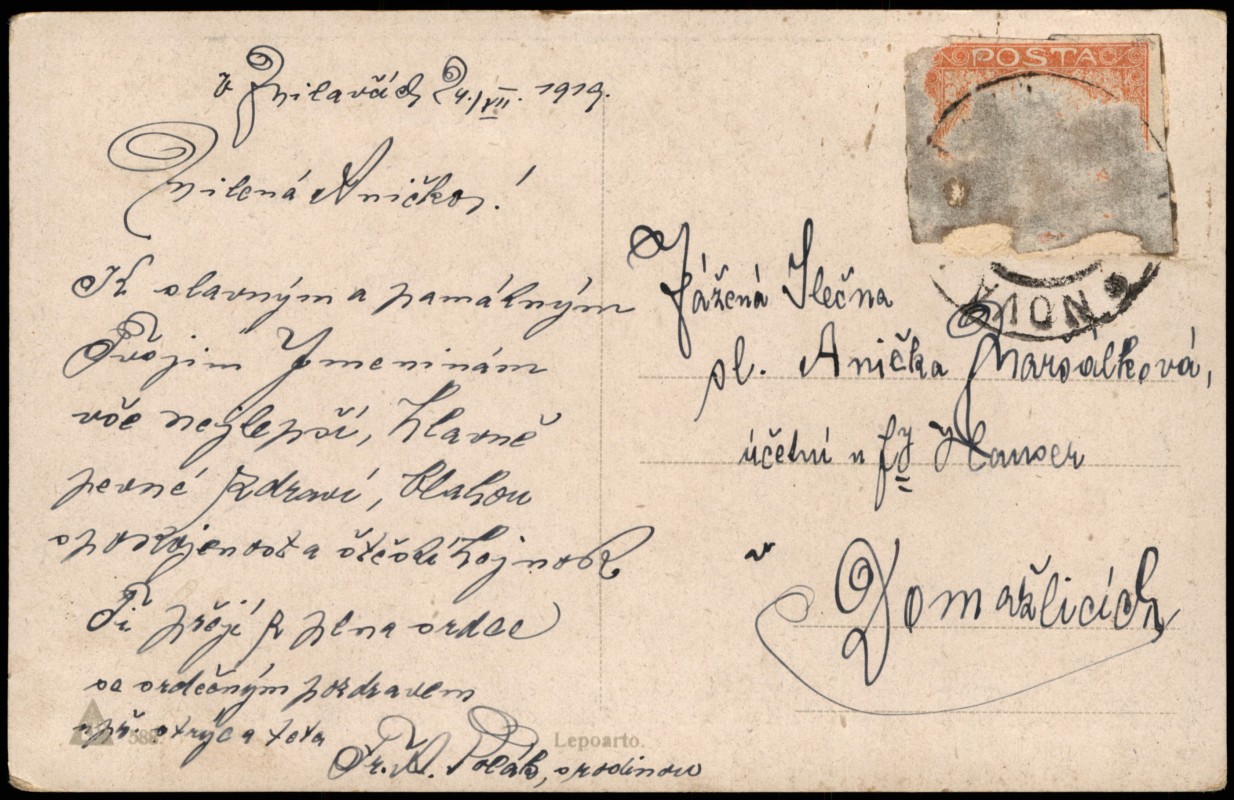 V Milavčích 24./VII. 1919.
Milená Aničko!
K slavným a památným
Tvojim Jmeninám
vše nejlepší, hlavně
pevné zdraví, blahou
spokojenost a štěstí hojnost
Ti přejí z plna srdce
se srdečným pozdravem
upř. strýc a teta
Fr. A. Polák, s rodinou
POSTA
NOVA
Vážená Slečna
sl. Anička Maršálková,
účetní u fy Hauser
v
Domažlicích
588
Lepoarto.